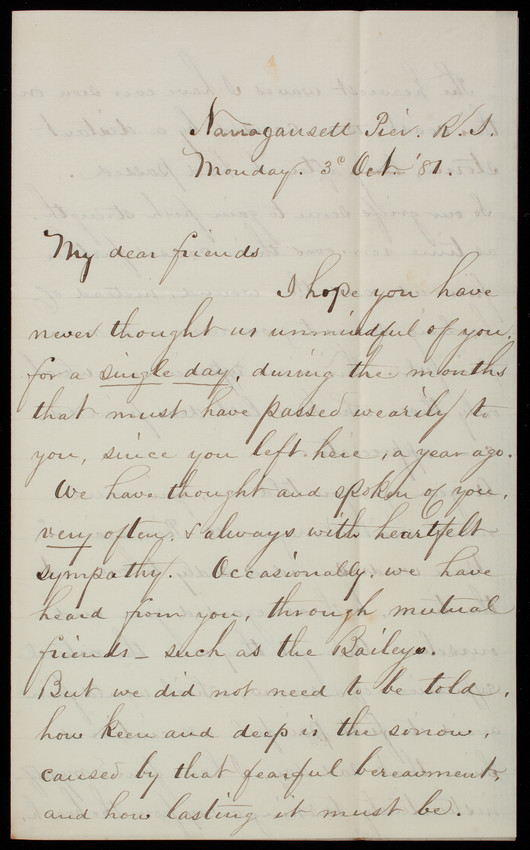 Narragansett Pier. R.I.
Monday. 3d Oct. '81.
My dear friends
I hope you have
never thought us unmindful of you,
for a single day, during the months
that must have passed wearily to
you, since you left here, a year ago.
We have thought and spoken of you,
very often, & always with heartfelt
sympathy. Occasionally, we have
heard from you, through mutual
friends – such as the Baileys.
But we did not need to be told,
how keen and deep is the sorrow,
caused by that fearful bereavment,
and how lasting it must be.